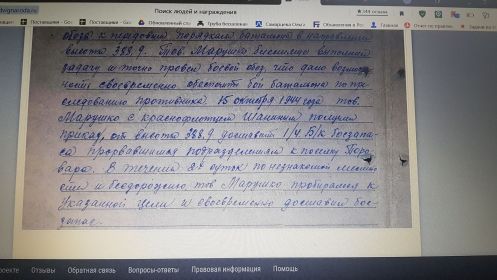 Поиск людей и награждения
Поставщики - Goo
Поставщики - Goo
Обновленный спи
Труба бесшовная
Самарцева Ольга
Объявления в Рос
обоза к передовым порядкам батальона в направлении
высота 388,9. Тов. Марушко бессменно выполнил
задачу и точно провел боевой обоз, что дало возмож
ность своевременно обеспечить бой батальона по пре
следованию противника. 15 октября 1944 года тов.
Марушко с красноармейцем Шаниным получил
приказ, от высота 388,9 доставить 1/4 Б/к боезапа-
са прорвавшимся подразделениям к поселку Пора-
вара. В течении 2х суток по незнакомой местно
сти и бездорожью, тов Марушко пробирался к
указанной цели и своевременно доставил бое-
запас.
роекте Отзывы Обратная связь Вопросы-ответы Правовая информация Помощь